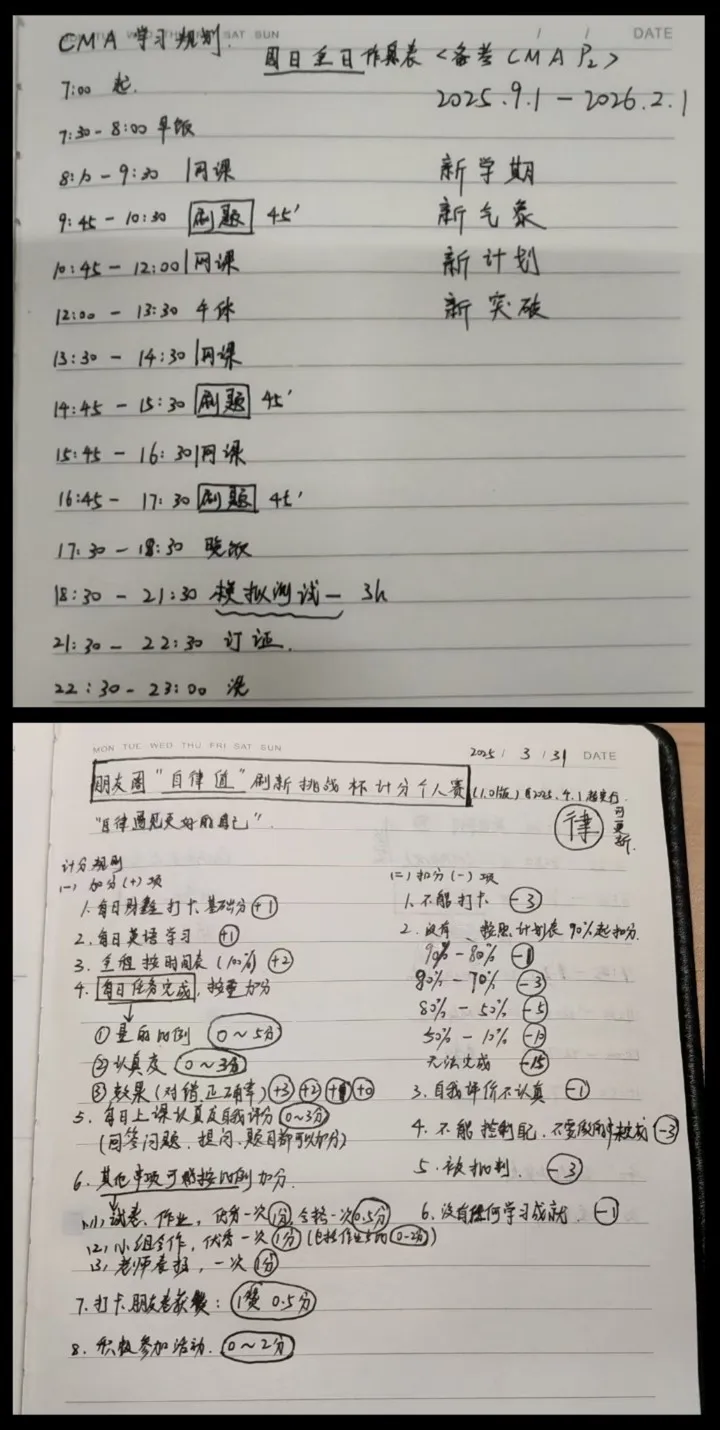 TUE WED THU FRI SAT SUN / / DATE
CMA 学习规划.
周日至日作息表 <备考 CMA P₂>
2025.9.1 — 2026.2.1
7:00 起.
7:30 - 8:00 早饭
8:10 - 9:30 网课
9:45 - 10:30 刷题 45'
10:45 - 12:00 网课
12:00 - 13:30 午休
13:30 - 14:30 网课
14:45 - 15:30 刷题 45'
15:45 - 16:30 网课
16:45 - 17:30 刷题 45'
17:30 - 18:30 晚饭
18:30 - 21:30 模拟测试一 3h
21:30 - 22:30 订证.
22:30 - 23:00 洗
新学期
新气象
新计划
新突破
MON TUE WED THU FRI SAT SUN
2025 / 3 / 31 DATE
朋友圈"自律值"刷新挑战杯计分个人赛 (1.01版) 自2025.4.1起实行
"自律遇见更好的自己".
律 可更新.
计分规则
(一) 加分(+)项
1. 每日 打卡 基础分 +1
2. 每日英语学习 +1
3. 全程按时间表 (100%) +2
4. 每日任务完成, 按量加分
① 量的比例 0~5分
② 认真度 0~3分
③ 效果(对错,正确率) +3 +2 +1 +0
5. 每日上课认真度自我评分 0~3分
(回答问题、提问、题目都可以加分)
6. 其他单项可能按比例加分.
(1) 试卷、作业, 优秀一次 1分, 合格一次 0.5分
(2) 小组合作, 优秀一次 1分 (0~2分)
(3) 老师表扬, 一次 1分
7. 打卡朋友圈获赞: 1赞 0.5分
8. 积极参加活动. 0~2分
(二) 扣分(-)项
1. 不能打卡 -3
2. 没有 按照计划表 90%起扣分.
90% - 80% -1
80% - 70% -3
80% - 50% -5
50% - 10% -10
无法完成 -15
3. 自我评价不认真 -1
4. 不能控制 , 不 -3
5. 被批判 -3
6. 没有任何学习成就. -1